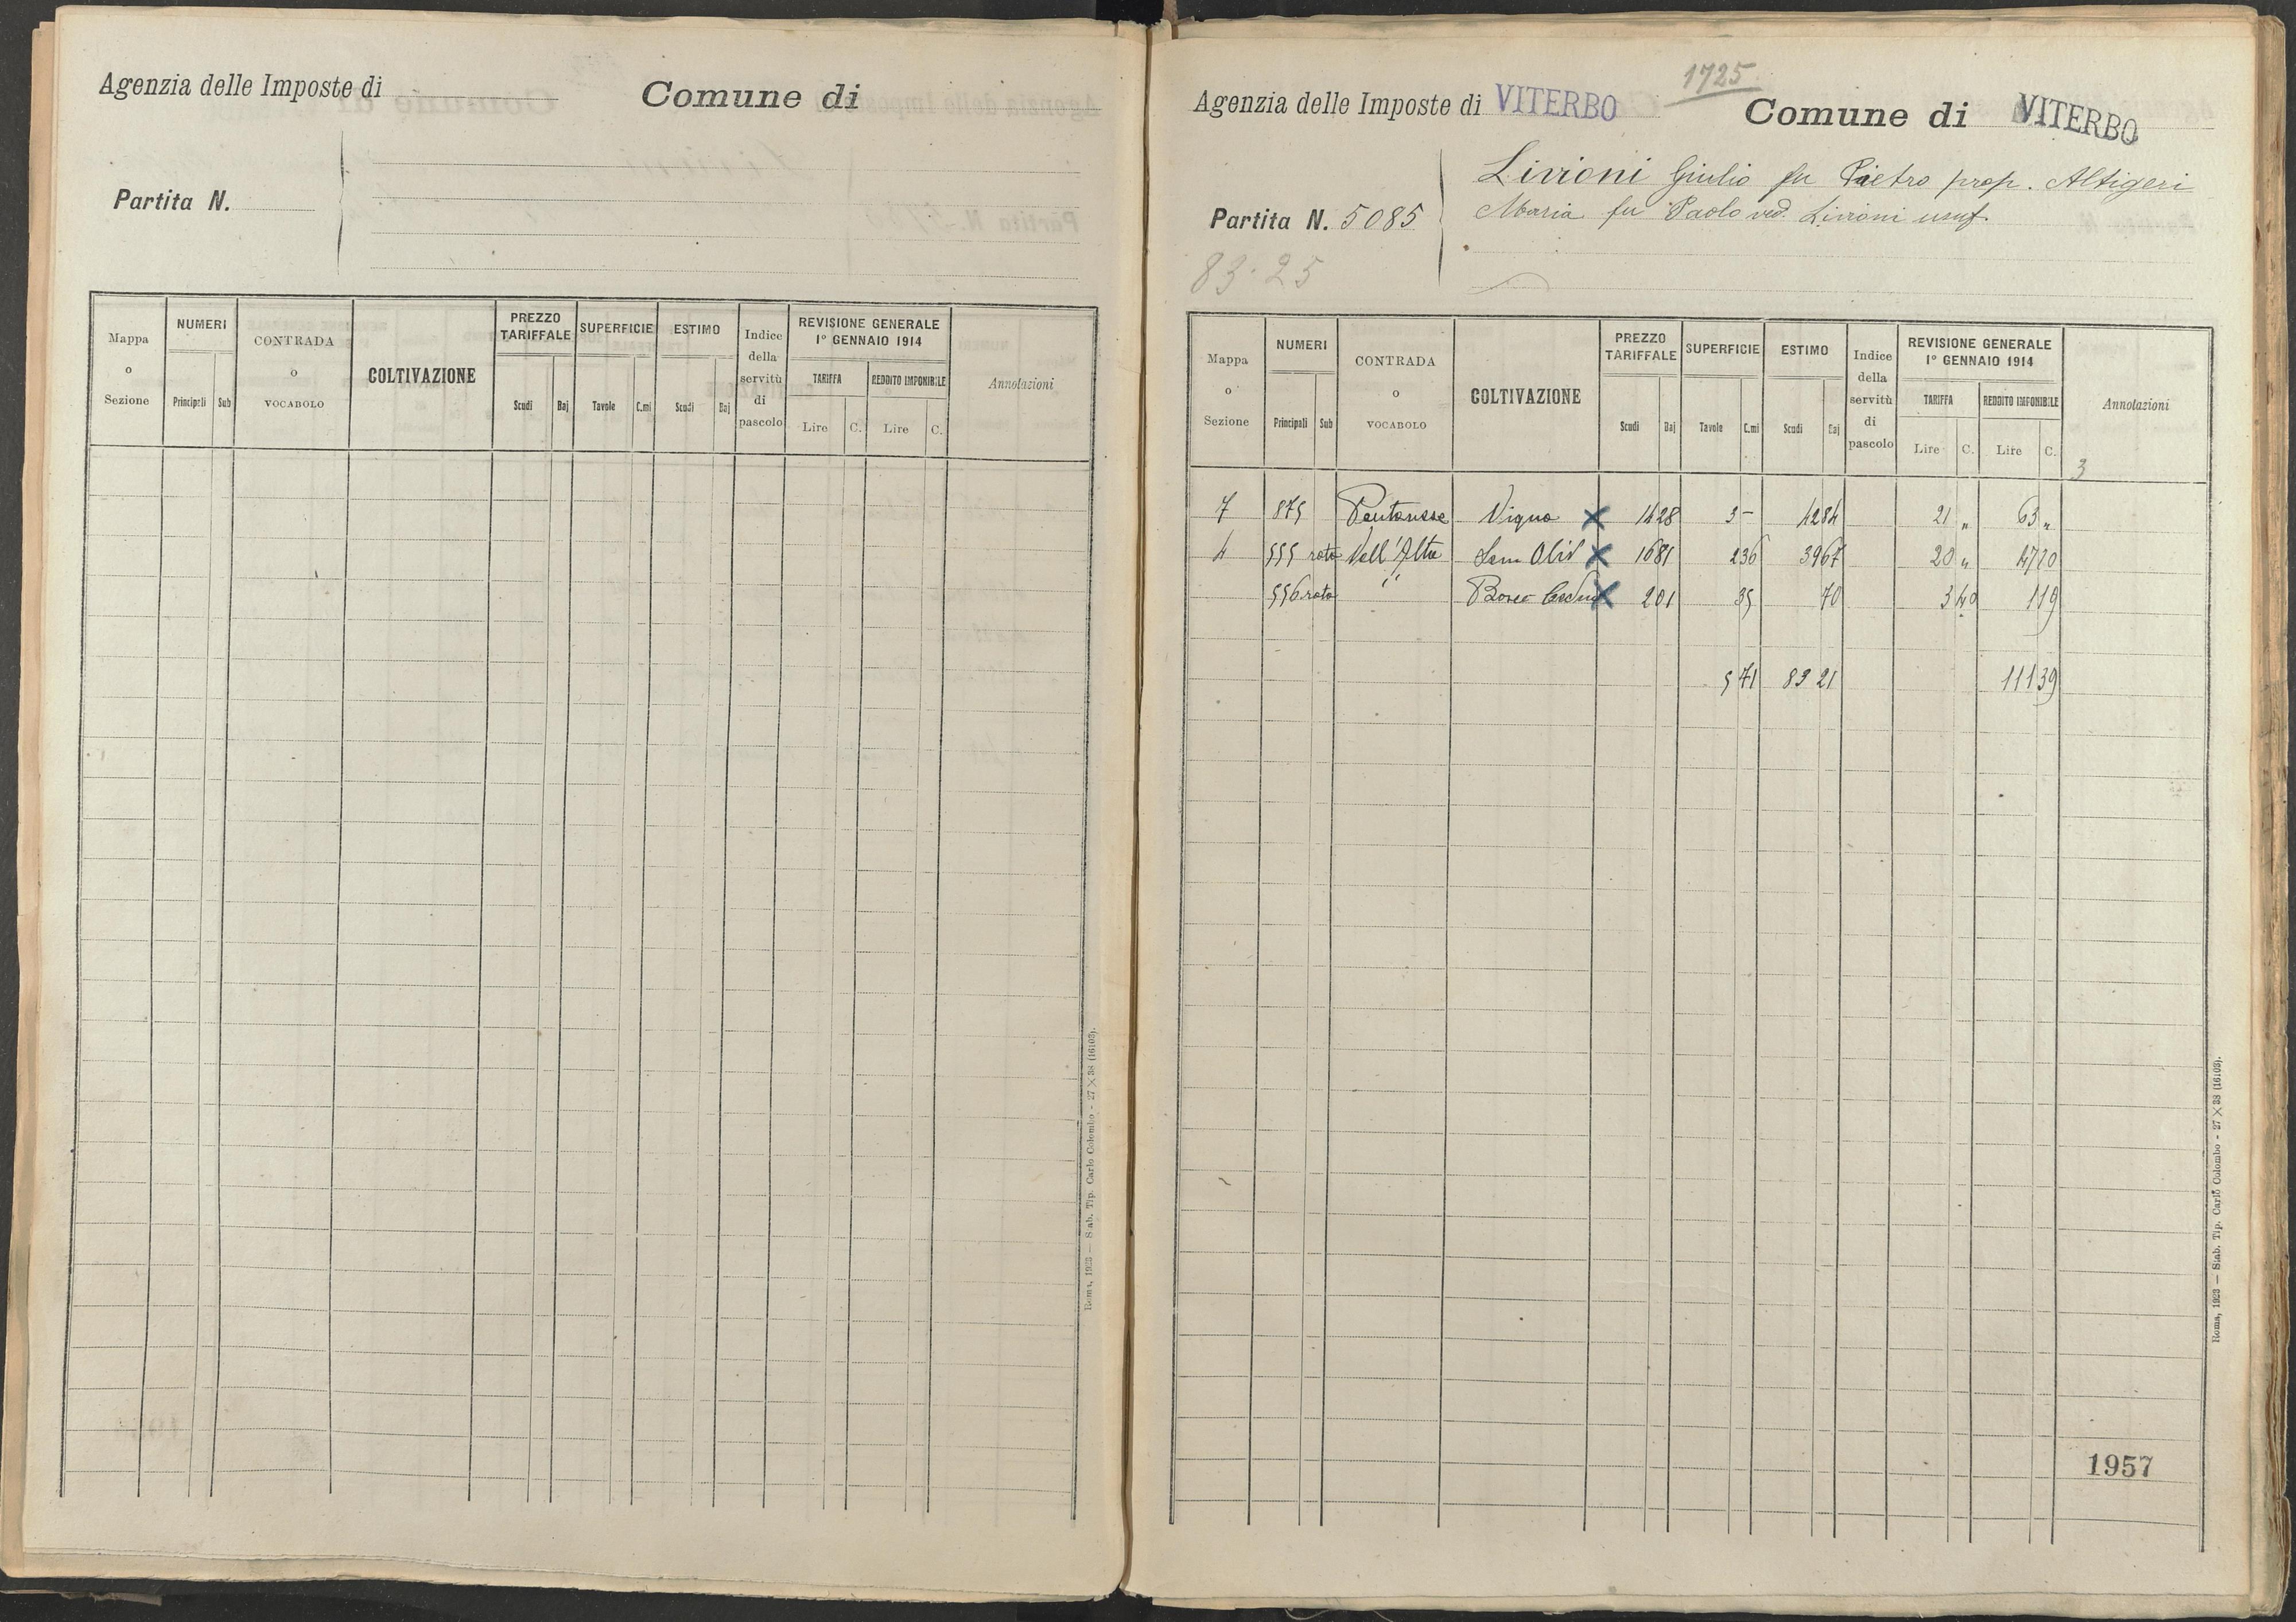 Agenzia delle Imposte di
Comune di
Partita N.
Mappa o Sezione
NUMERI
Principali Sub
CONTRADA o VOCABOLO
COLTIVAZIONE
PREZZO TARIFFALE
Scudi Baj
SUPERFICIE
Tavole C.mi
ESTIMO
Scudi Baj
Indice della servitù di pascolo
REVISIONE GENERALE 1° GENNAIO 1914
TARIFFA
Lire C.
REDDITO IMPONIBILE
Lire C.
Annotazioni
Roma, 1923 — Stab. Tip. Carlo Colombo - 27 × 38 (16103).
1725
Agenzia delle Imposte di VITERBO
Comune di VITERBO
Partita N. 5085
83.25
Livioni Giulio fu Pietro prop. Altigeri
Maria fu Paolo ved. Livioni usuf.
Mappa o Sezione
NUMERI
Principali Sub
CONTRADA o VOCABOLO
COLTIVAZIONE
PREZZO TARIFFALE
Scudi Baj
SUPERFICIE
Tavole C.mi
ESTIMO
Scudi Baj
Indice della servitù di pascolo
REVISIONE GENERALE 1° GENNAIO 1914
TARIFFA
Lire C.
REDDITO IMPONIBILE
Lire C.
Annotazioni
3
7 875 Vigna X 14 28 3 – 42 84 21 " 63 "
4 555 rata Vall'Alta Sem Oliv X 16 81 2 36 39 67 20 " 47 20
556 rata " Bosco Ceduo X 2 01 35 70 3 40 1 19
5 71 83 21 111 39
1957
Roma, 1923 — Stab. Tip. Carlo Colombo - 27 × 38 (16103).